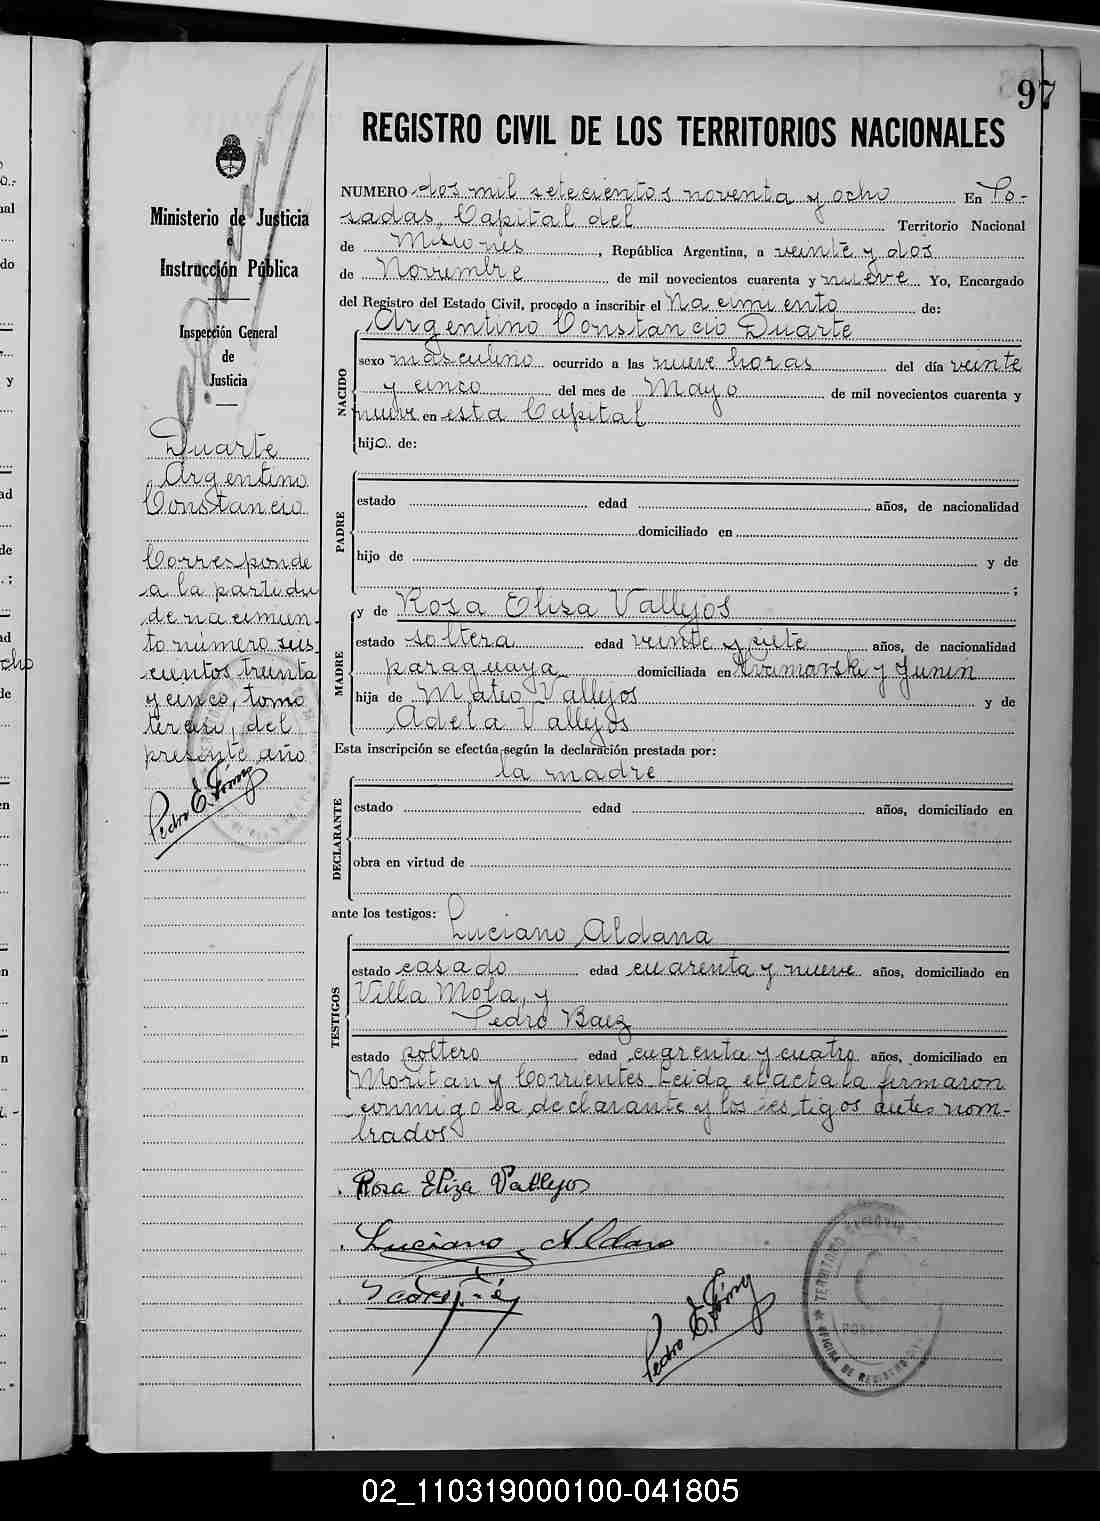 97
REGISTRO CIVIL DE LOS TERRITORIOS NACIONALES
Ministerio de Justicia
e
Instrucción Pública
Inspección General
de
Justicia
Duarte
Argentino
Constancio
Corresponde
a la partida
de nacimien-
to número seis
cientos treinta
y cinco, tomo
tercero, del
presente año
NUMERO dos mil setecientos noventa y ocho En Po-
sadas, Capital del Territorio Nacional
de Misiones, República Argentina, a veinte y dos
de Noviembre de mil novecientos cuarenta y nueve Yo, Encargado
del Registro del Estado Civil, procedo a inscribir el Nacimiento de:
NACIDO
Argentino Constancio Duarte
sexo masculino ocurrido a las nueve horas del día veinte
y cinco del mes de Mayo de mil novecientos cuarenta y
nueve en esta Capital
hijo de:
PADRE
estado edad años, de nacionalidad
domiciliado en
hijo de y de
;
MADRE
y de Rosa Elisa Vallejos
estado soltera edad veinte y siete años, de nacionalidad
paraguaya domiciliada en y Junin
hija de Mateo Vallejos y de
Adela Vallejos
Esta inscripción se efectúa según la declaración prestada por:
la madre
DECLARANTE
estado edad años, domiciliado en
obra en virtud de
ante los testigos:
TESTIGOS
Luciano Aldana
estado casado edad cuarenta y nueve años, domiciliado en
Villa Mola, y
Pedro Baez
estado soltero edad cuarenta y cuatro años, domiciliado en
y Corrientes. Leida el acta la firmaron
conmigo la declarante y los testigos antes nom-
brados
Rosa Eliza Vallejos
Luciano Aldana
TERRITORIO
OFICINA DE REGISTRO
02_110319000100-041805